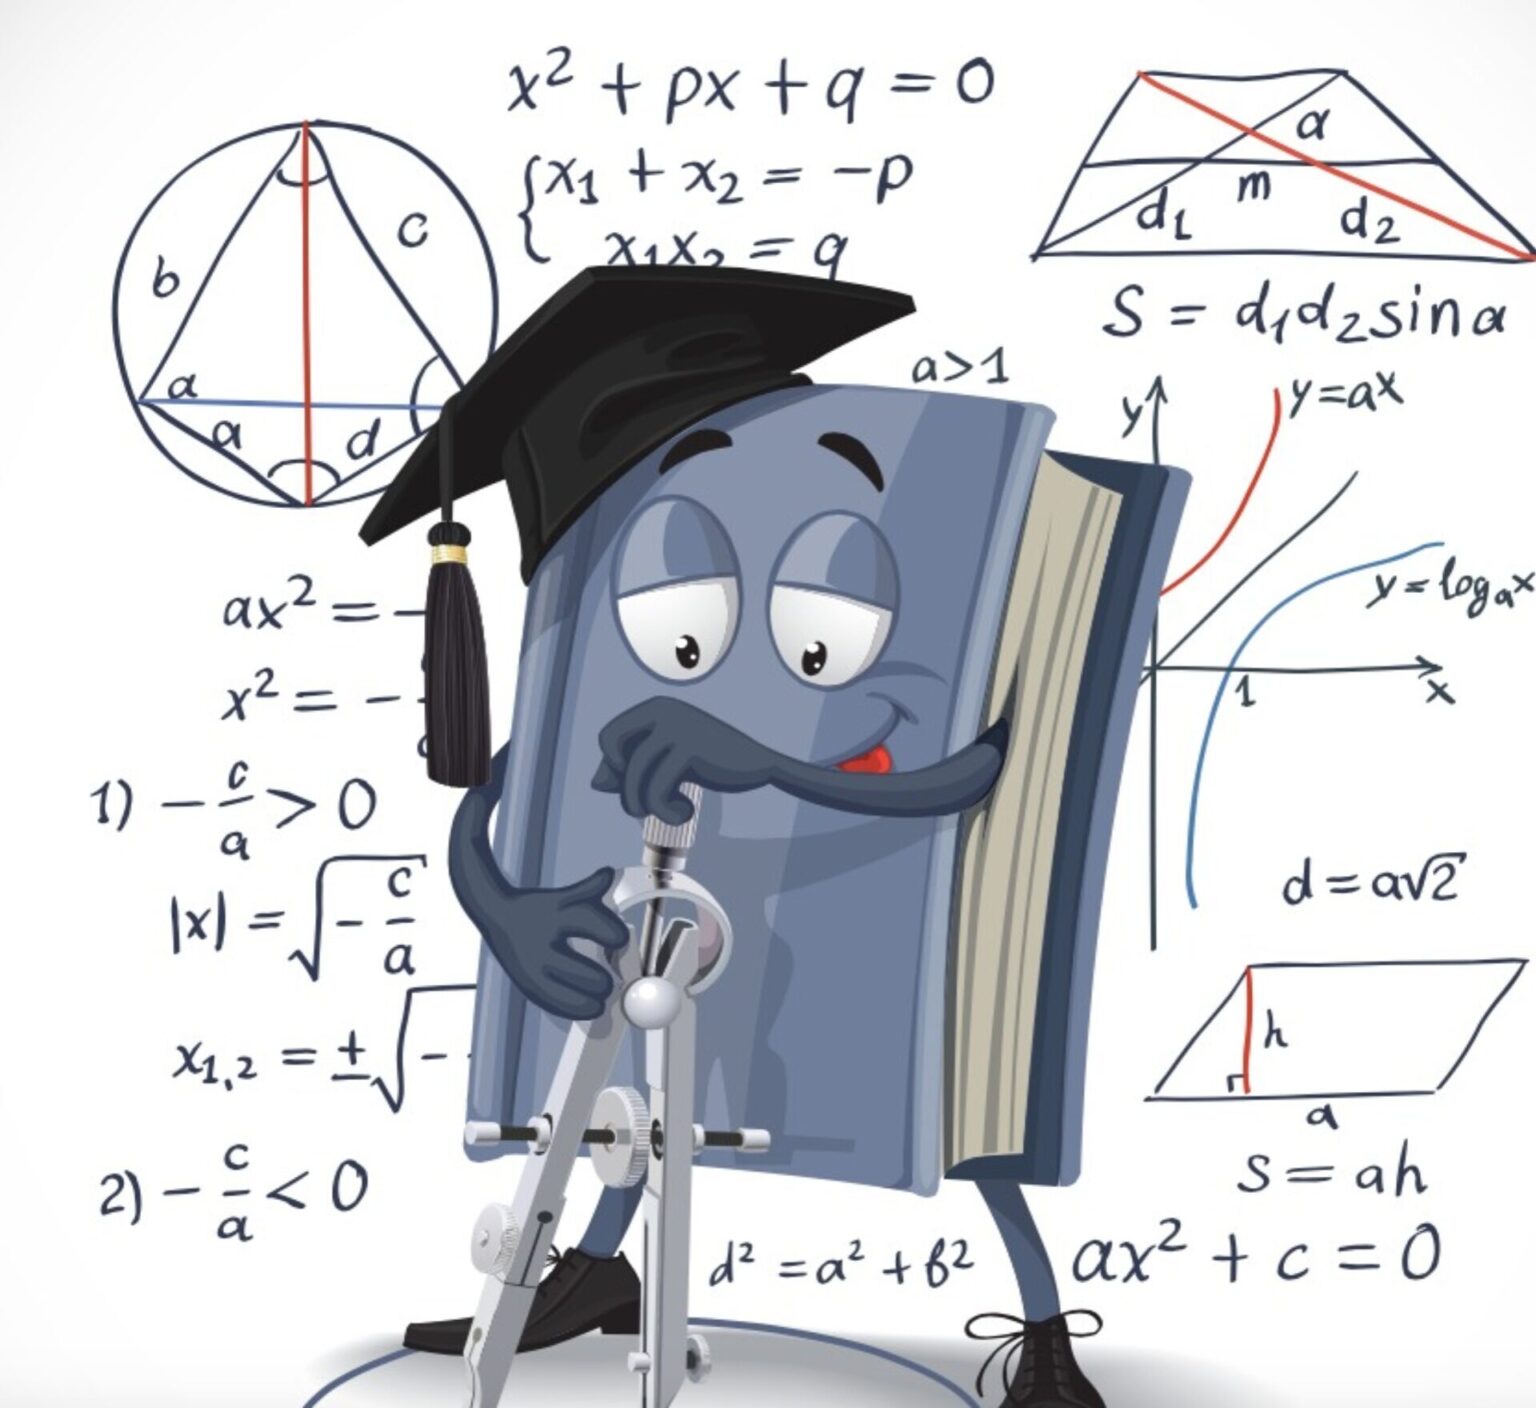 x² + px + q = 0
x₁ + x₂ = -p
x₁x₂ = q
b
c
a
a
d
a
m
d₁
d₂
S = d₁d₂sina
a>1
y
y=ax
y = logₐx
1
x
ax² = -
x² = -
1) - c/a > 0
|x| = √- c/a
x₁,₂ = ±√-
2) - c/a < 0
d = a√2
h
a
S = ah
d² = a² + b²
ax² + c = 0